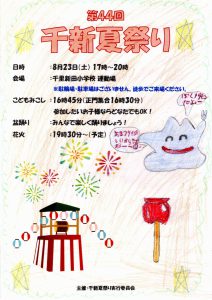 第44回
千新夏祭り
日時 ・8月23日(土)17時~20時
会場 ・千里新田小学校 運動場
※駐輪場・駐車場はございません。徒歩でご来場ください。
こどもみこし ・16時45分(正門集合16時30分)
参加したいお子様ならどなたでもOK!
盆踊り ・みんなで楽しく踊りましょう!
花火 ・19時30分~(予定)
主催・千新夏祭り実行委員会